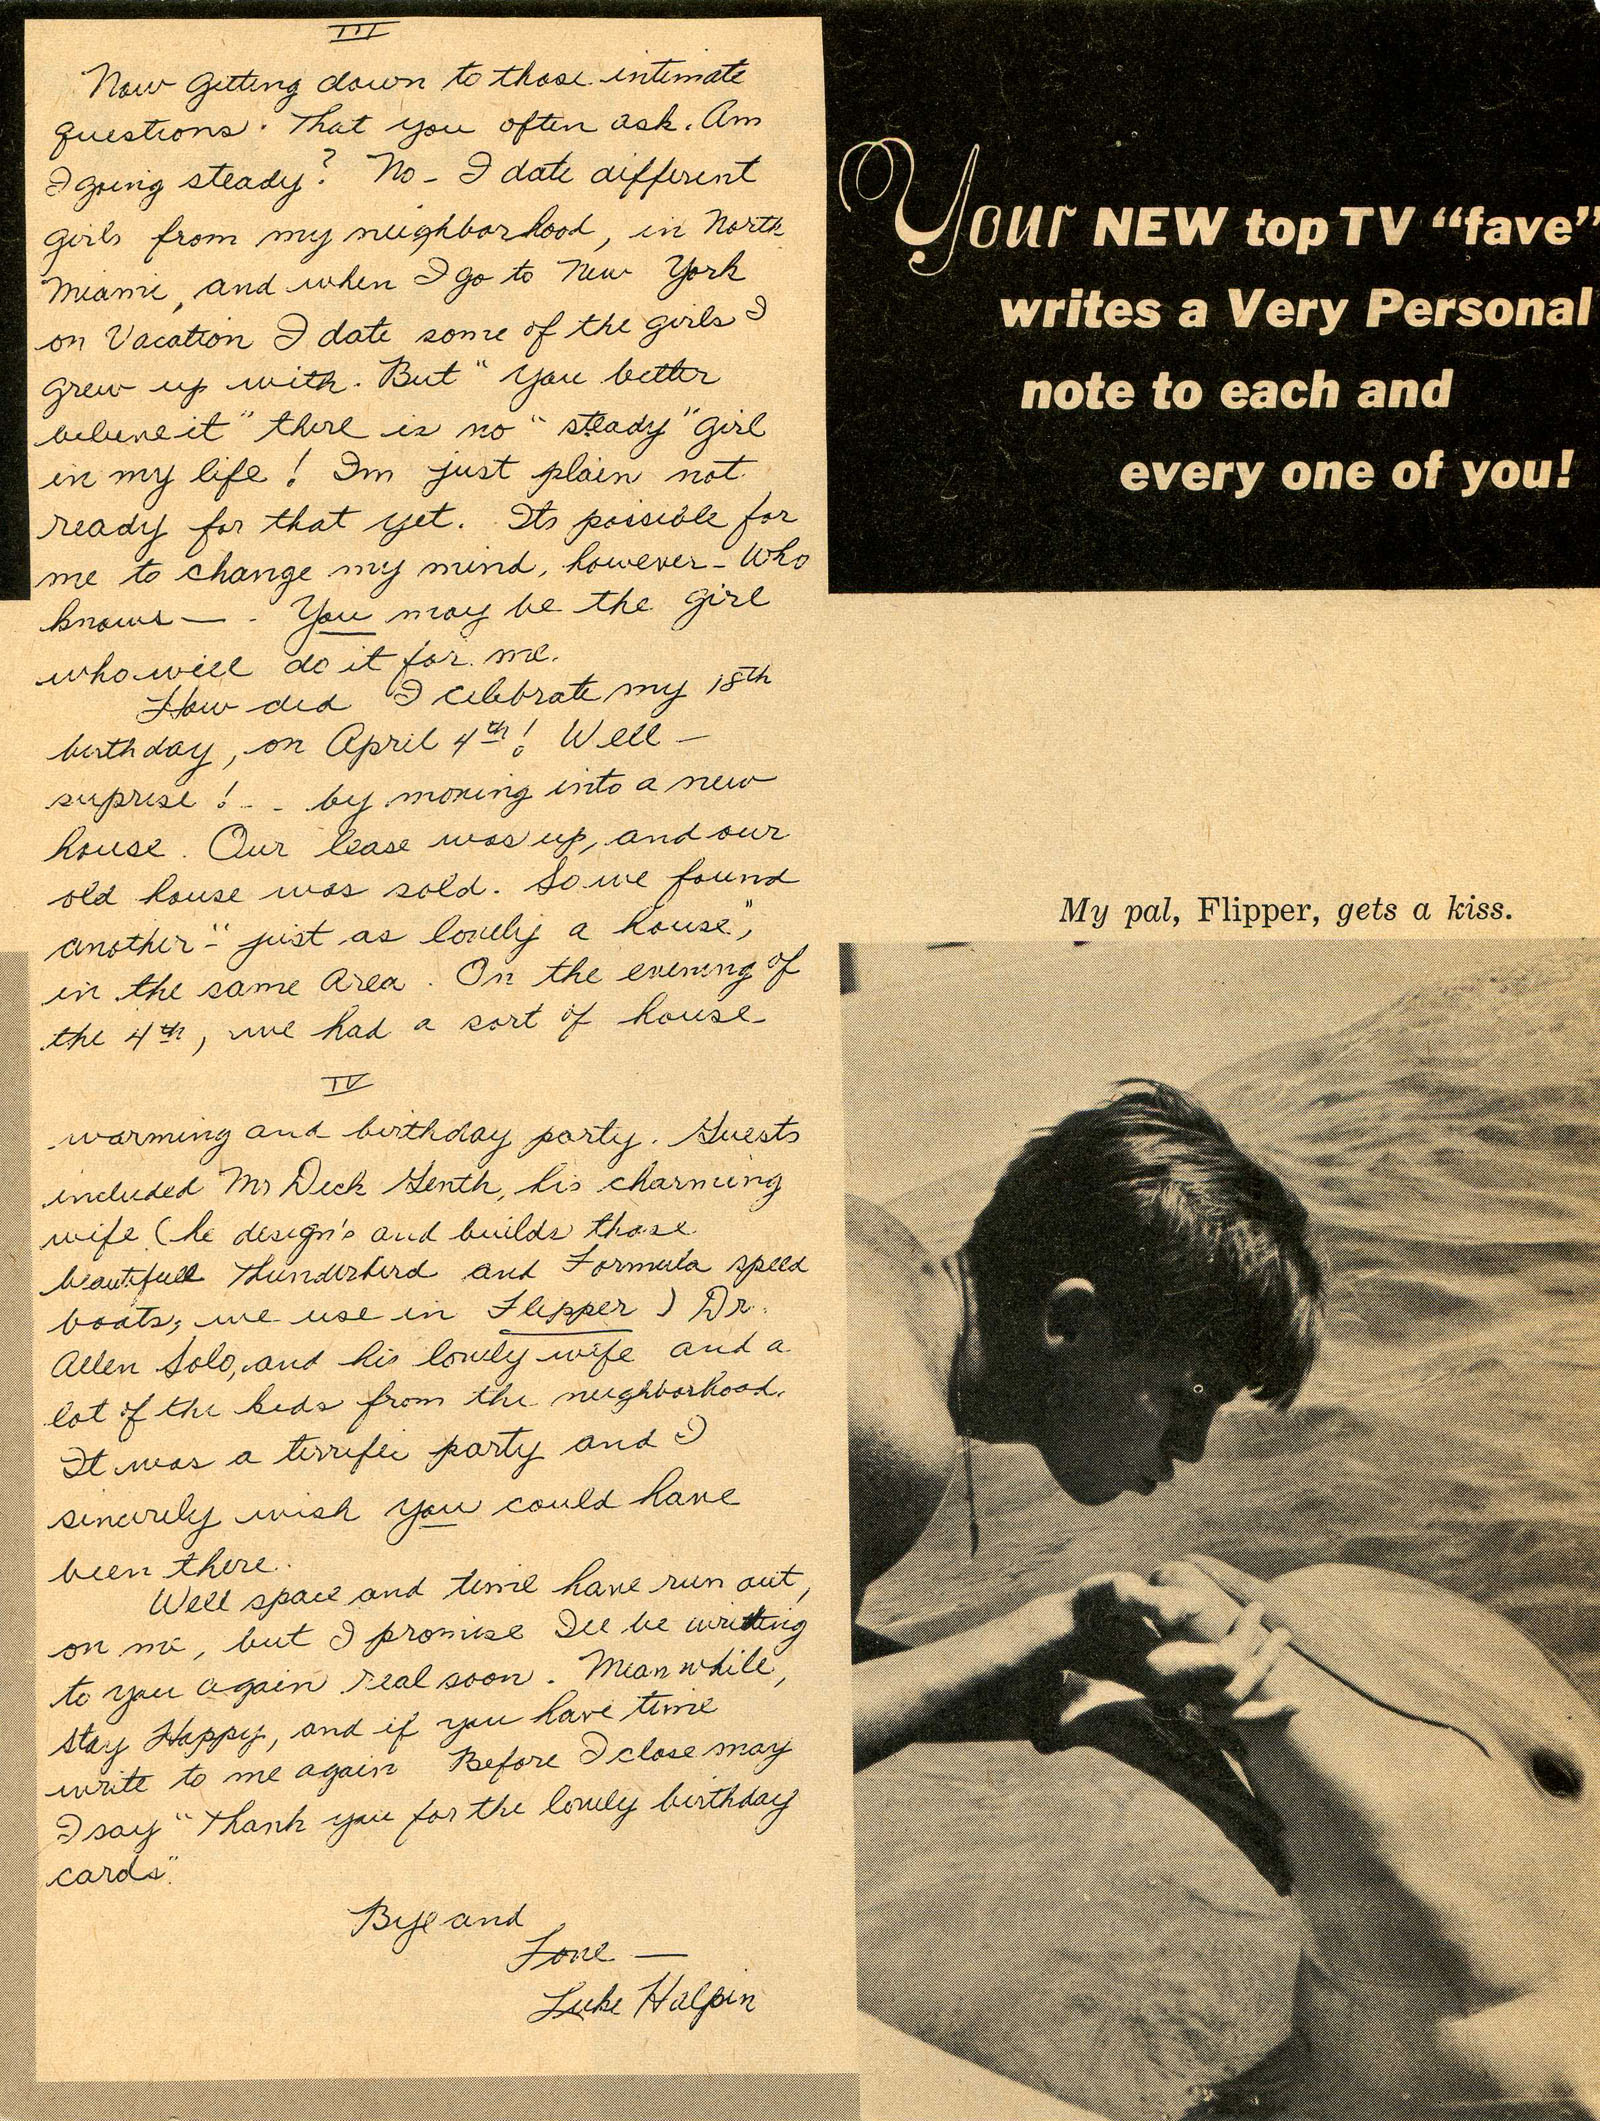 III
Now getting down to those intimate
questions. That you often ask. Am
I going steady? No - I date different
girls from my neighborhood, in North
Miami, and when I go to New York
on Vacation I date some of the girls I
grew up with. But "you better
believe it" there is no "steady" girl
in my life! Im just plain not
ready for that yet. Its possible for
me to change my mind, however - Who
knows — . You may be the girl
who will do it for me.
How did I celebrate my 18th
birthday, on April 4th! Well —
suprise! - - by moving into a new
house. Our lease was up, and our
old house was sold. So we found
another - "just as lovely a house",
in the same Area. On the evening of
the 4th, we had a sort of house
IV
warming and birthday party. Guests
included Mr Dick Genth, his charming
wife (he design's and builds those
beautifull Thunderbird and Formula speed
boats; we use in Flipper) Dr.
Allen Solo, and his lovely wife and a
lot of the kids from the neighborhood.
It was a terrific party and I
sincerely wish you could have
been there.
Well space and time have run out,
on me, but I promise Ill be writting
to you again real soon. Meanwhile,
stay Happy, and if you have time
write to me again Before I close may
I say "Thank you for the lovely birthday
cards".
Bye and
Love —
Luke Halpin
Your NEW top TV "fave"
writes a Very Personal
note to each and
every one of you!
My pal, Flipper, gets a kiss.